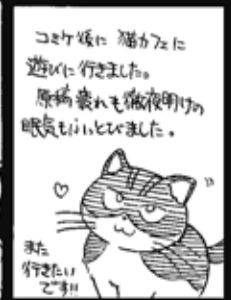 コミケ後に 猫カフェに
遊びに行きました。
原稿疲れも徹夜明けの
眠気もふっとびました。
また
行きたい
です!!